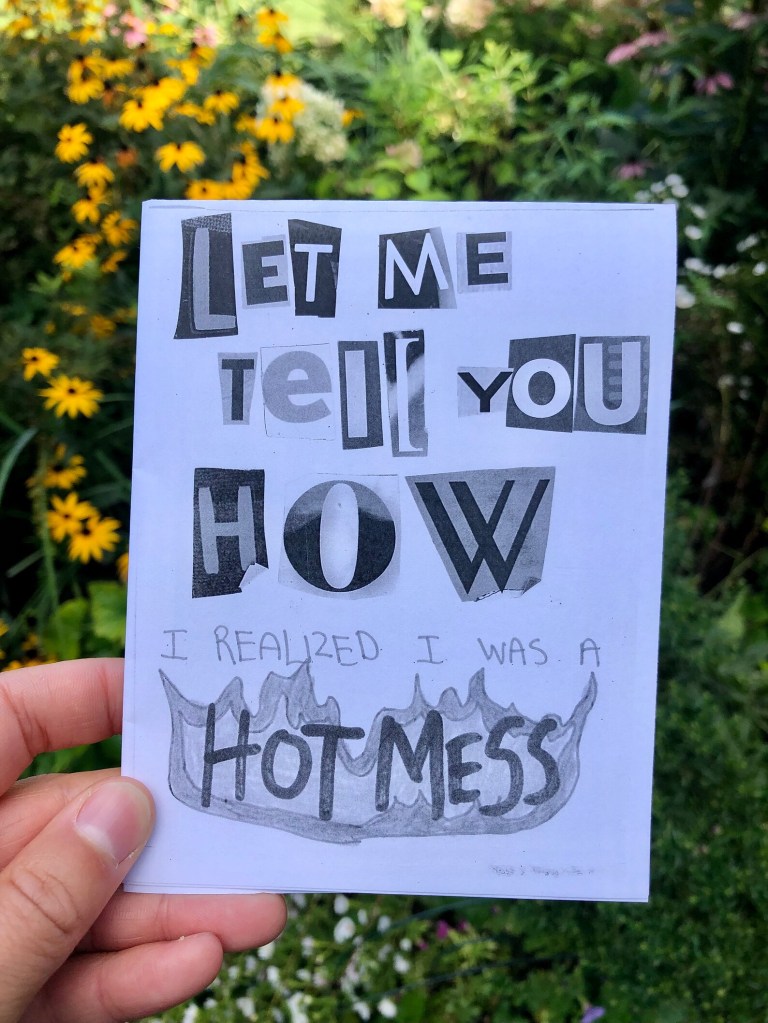 LET ME
TellL YOU
HOW
I REALIZED I WAS A
HOT MESS